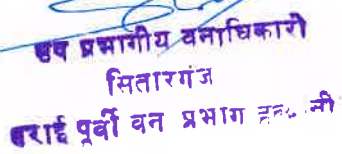 उप प्रभागीय वनाधिकारी
सितारगंज
तराई पूर्वी वन प्रभाग